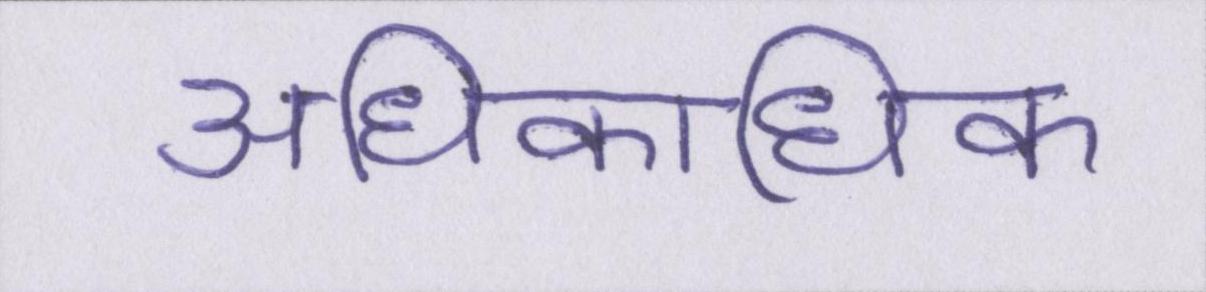 अधिकाधिक